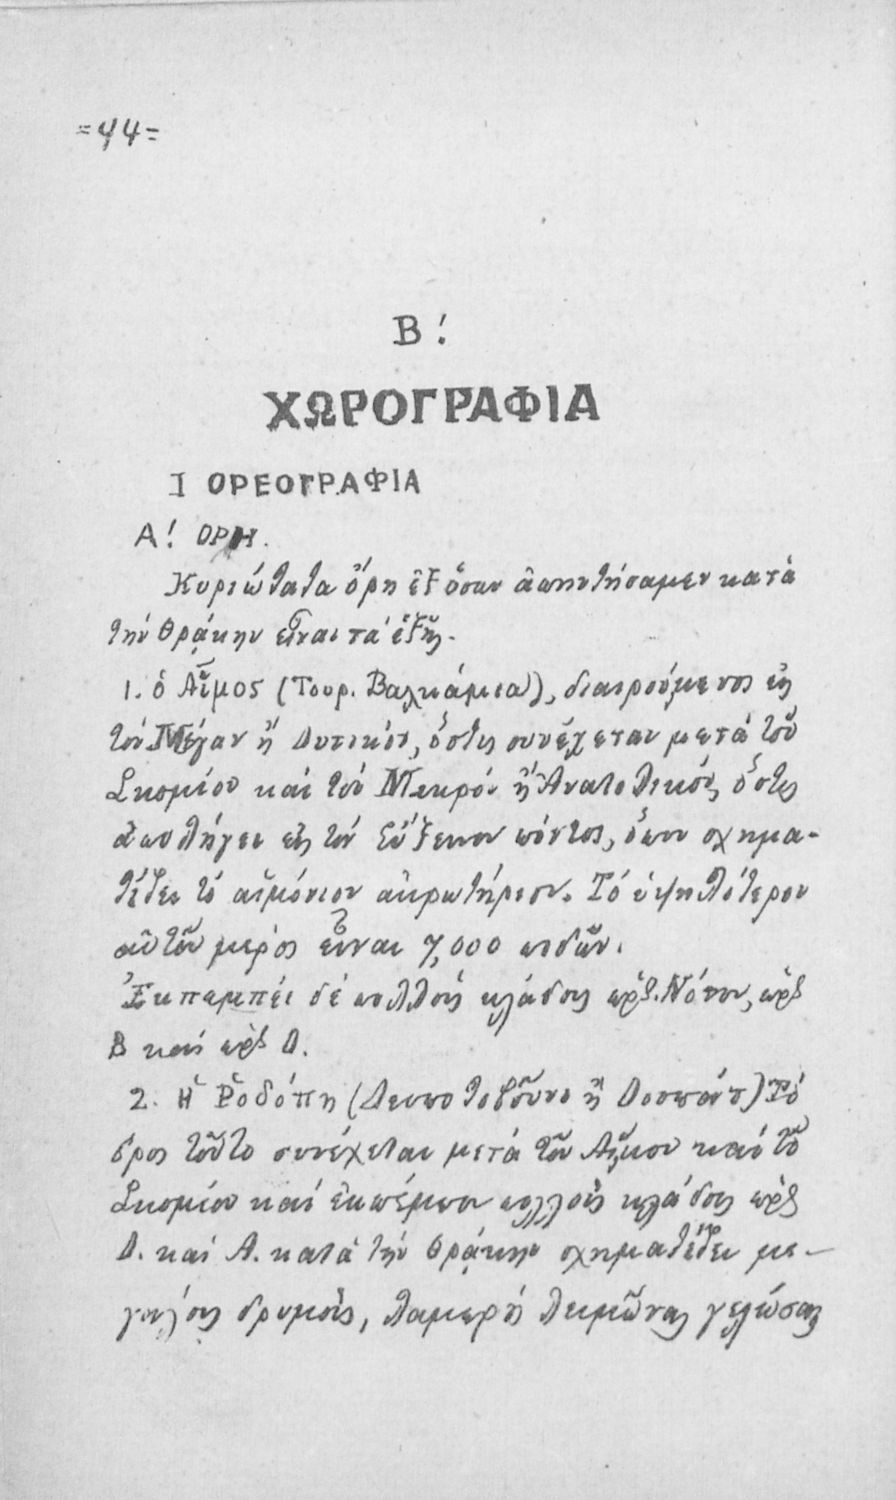 =44=
Β!
ΧΩΡΟΓΡΑΦΙΑ
Ι ΟΡΕΟΓΡΑΦΙΑ
Α! ΟΡΗ.
Κυριώτατα ὄρη ἐξ ὅσων ἀπηντήσαμεν κατὰ
τὴν Θρᾴκην εἶναι τὰ ἑξῆς.
1. ὁ Αἷμος (Τουρ. Βαλκάμια), διαιρούμενος εἰς
τὸν Μέγαν ἢ Δυτικὸν, ὅστις συνέχεται μετὰ τοῦ
Σκομίου καὶ τὸν Μικρὸν ἢ Ἀνατολικὸν, ὅστις
ἀπολήγει εἰς τὸν Εὔξεινον πόντον, ὅπου σχημα-
τίζει τὸ αἱμόνιον ἀκρωτήριον. Τὸ ὑψηλότερον
αὐτοῦ μέρος εἶναι 7,000 ποδῶν.
Ἐκπέμπει δὲ πολλοὺς κλάδους πρὸς Νότον, πρὸς
Β καὶ πρὸς Δ.
2. Ἡ Ῥοδόπη (Δεσποτοβοῦνο ἢ Δοσπὰντ) Τὸ
ὄρος τοῦτο συνέχεται μετὰ τοῦ Αἵμου καὶ τοῦ
Σκομίου καὶ ἐκπέμπον πολλοὺς κλάδους πρὸς
Δ. καὶ Α. κατὰ τὴν Θρᾴκην σχηματίζει με-
γάλους δρυμοὺς, λειμῶνας γελώσας